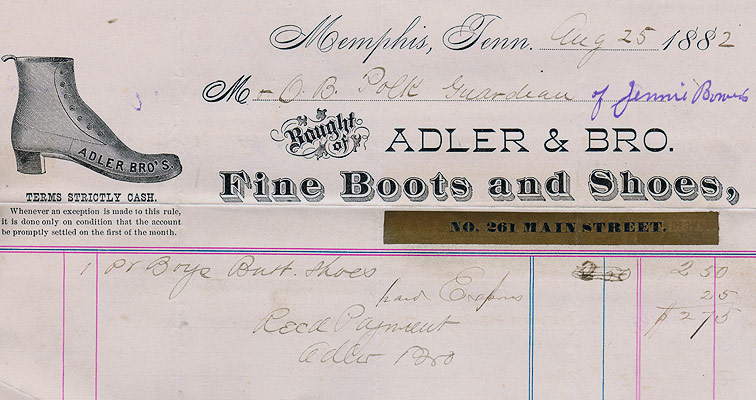 Memphis, Tenn. Aug 25 1882
Mr O. B. Polk Guardian of Jennie Bowers
Bought of ADLER & BRO.
ADLER BRO'S.
Fine Boots and Shoes,
TERMS STRICTLY CASH.
Whenever an exception is made to this rule,
it is done only on condition that the account
be promptly settled on the first of the month.
NO. 261 MAIN STREET.
1 pr Boys Butt. Shoes 2 50
paid 25
Recd Payment $2 75
Adler Bro